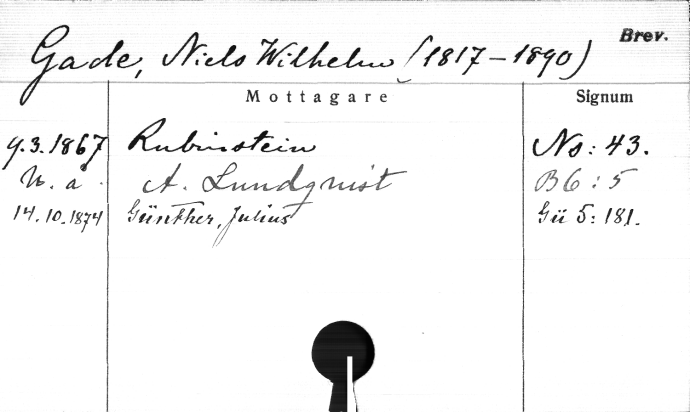 Gade, Niels Wilhelm (1817-1890) Brev.
Mottagare Signum
9.3.1867 Rubinstein Ns: 43.
U. å. A. Lundqvist B6:5
14.10.1874 Günther, Julius Gü 5: 181.